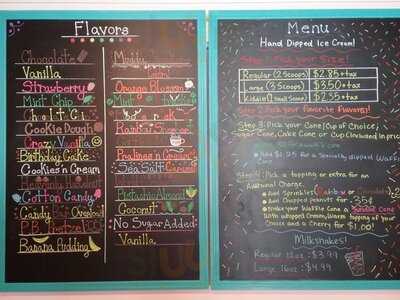 Flavors
Chocolate
Vanilla
Strawberry
Mint Chip
Cookie Dough
Crazy Vanilla
Birthday Cake
Cookies n Cream
Heavenly Hash
Cotton Candy
Candy Bar Overload
P.B. Pretzel
Banana Pudding
Orange Blossom
Mint
Rainbow Sherbet
Pralines n' Cream
Sea Salt Caramel
Pistachio Almond
Coconut
No Sugar Added
Vanilla
Menu
Hand Dipped Ice Cream!
Step 1: Pick your Size!
Regular (2 Scoops) $2.85+tax
Large (3 Scoops) $3.50+tax
Kiddie (1 small Scoop) $2.35+tax
Step 2: Pick your Favorite Flavors!
Step 3: Pick your Cone (Cup of Choice)
Sugar Cone, Cake Cone or Cup (Included in price)
Add $1.25 for a Specialty dipped Waffle
Step 4: Pick a topping or extra for an
Additional Charge.
Add Sprinkles (Rainbow or Chocolate)
Add Chopped Peanuts for 35¢
Make your Waffle Cone a Sundae Cone
with whipped cream, Warm topping of your
Choice and a Cherry for $1.00!
Milkshakes!
Regular 12oz : $3.99
Large 16oz : $4.99